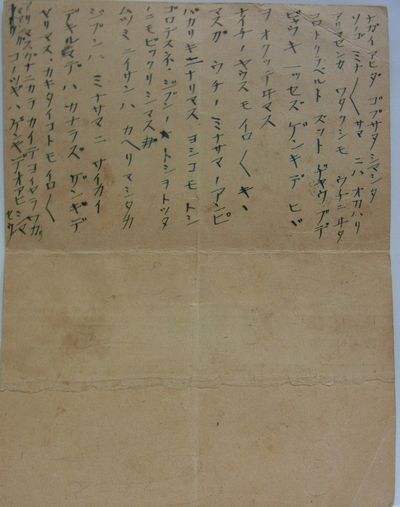 ナガイアヒダ ゴブサタ シマシタ
ソノゴ ミナ〱サマ ニハ オカハリ
アリマセンカ ワタクシモ ウチニヰタ
コロトクラベルト ズット ヂャウブデ
ビョウキ一ツセズゲンキデ ヒビ
ヲ オクッテヰマス
ナイチノヤウスモイロ〱キヽ
マスガ ウチノミナサマノアンピ
バカリキニナリマス ヨシコモトシ
ゴロデスネ、ジブンノトシヲトッタ
ノニモビックリシマスガ
ムツミニイサンハ カヘリマシタカ
ジブンハ ミナサマニ サイカイ
デキルマデハカナラズ ゲンキデ
ヤリマス、カキタイコトモ イロ〱
アリマスガナニカラカイテヨイヤラワカ